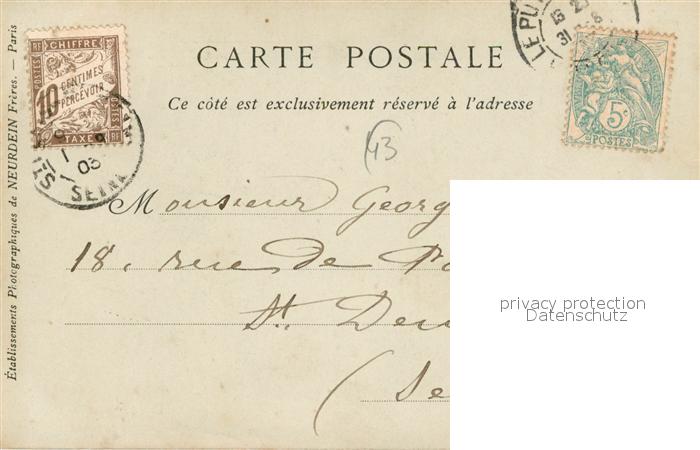 CARTE POSTALE
Ce côté est exclusivement réservé à l'adresse
CHIFFRE
10 CENTIMES
À PERCEVOIR
TAXE
POSTES
RF
5c
POSTES
LE PU
31
1
03
SEINE
43
Monsieur Georg
18. rue de
St. Den
(Se
Établissements Photographiques de NEURDEIN Frères. — Paris
privacy protection
Datenschutz